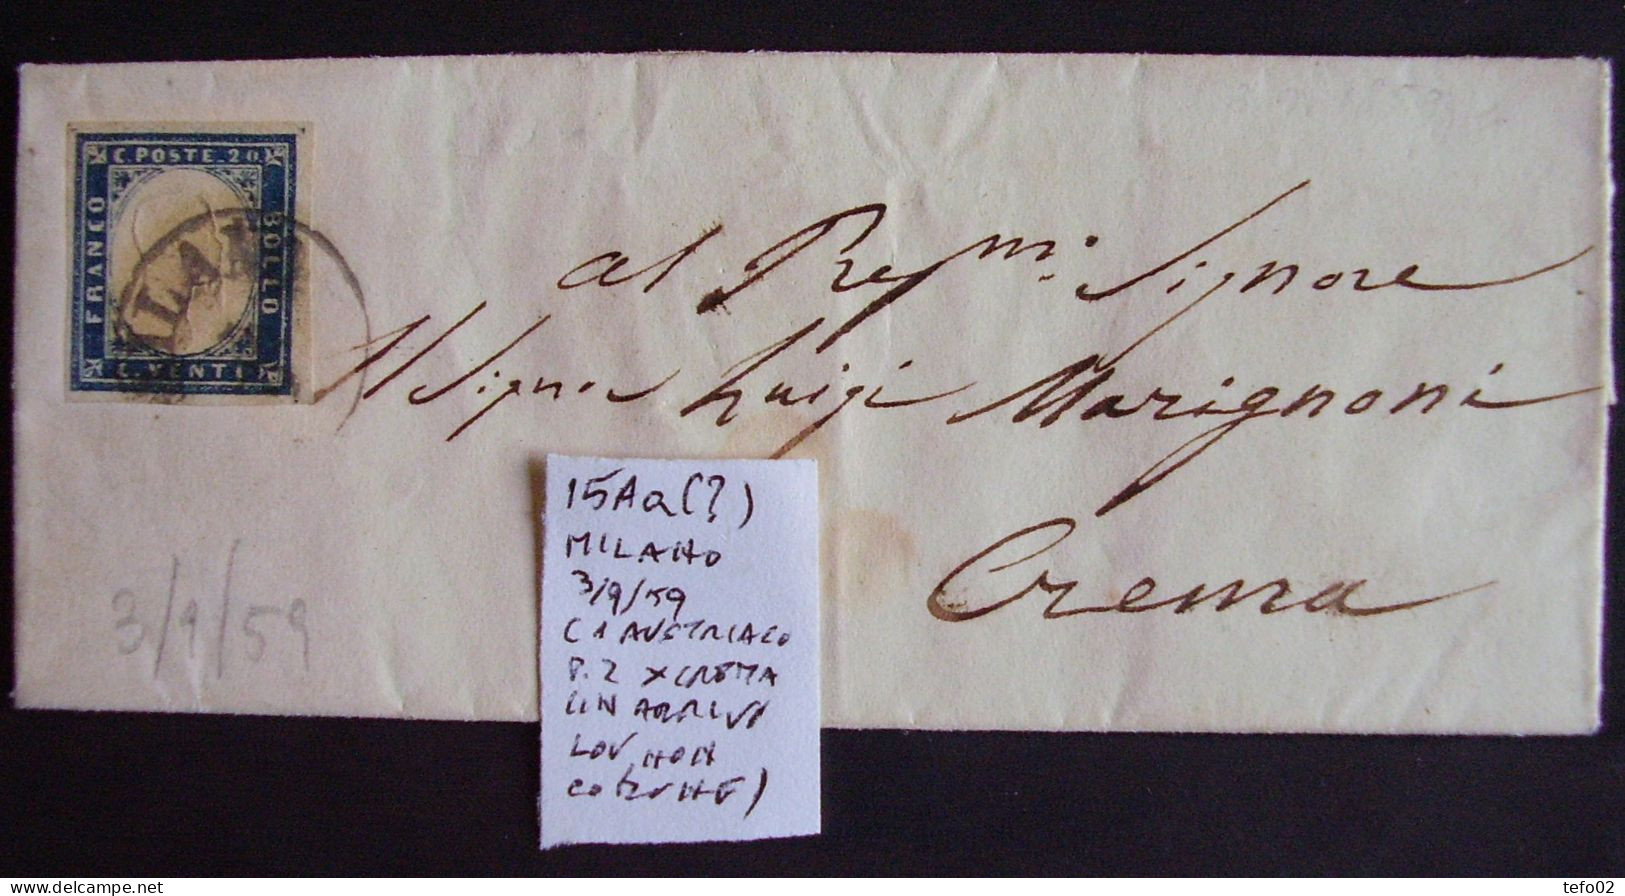 C. POSTE. 20
FRANCO
BOLLO
C. VENTI
ILAN
al Preg.mi Signore
Il Signor Luigi Marignoni
Crema
3/9/59
15Aa(?)
MILANO
3/9/59
C1 AUSTRIACO
P.2 X CREMA
CON ARRIVO
NON
COMUNE)
Delcampe.net
tefo02